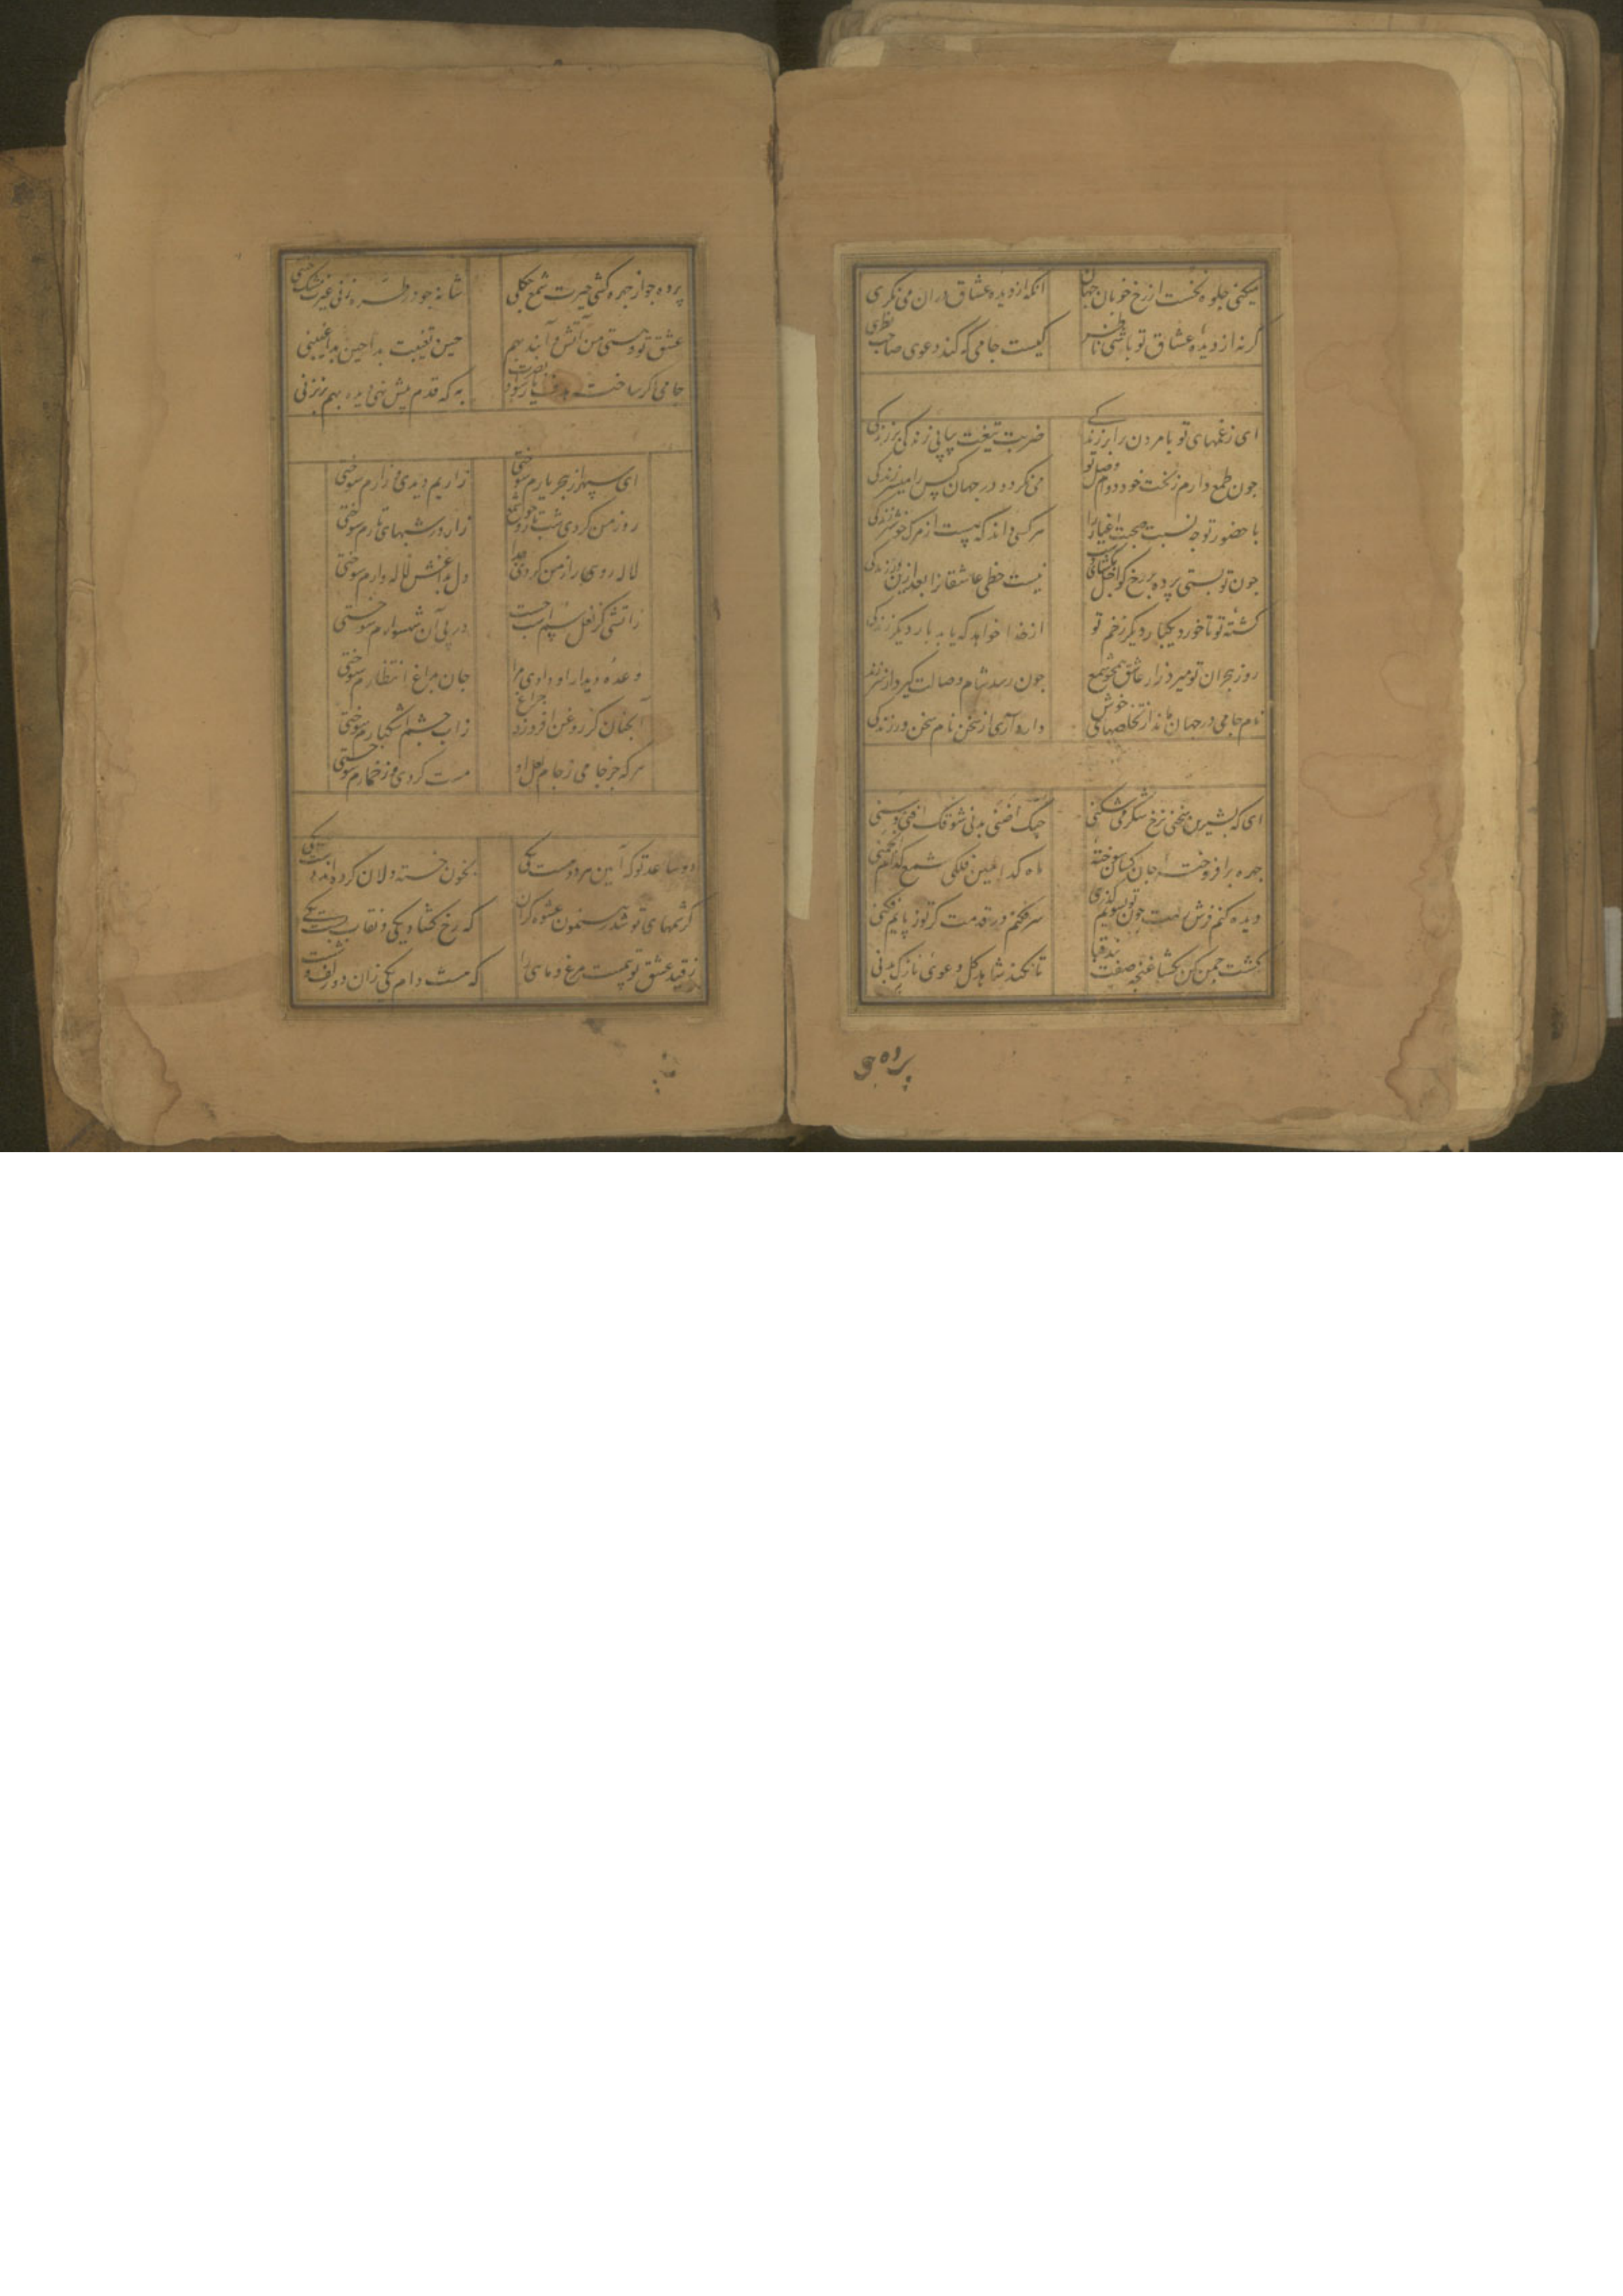 میکنی جلوه نخست از رخ خوبان جهان
انکه از دیده عشاق دران می نکری
کرنه از دیده عشاق تو باشی ناظر
کیست جامی که کند دعوی صاحب نظری
ای زغمهای تو با مردن برابر زندکی
ضربت تیغت پیاپی زندکی بر زندکی
چون طمع دارم ز بخت خود دوام وصل تو
می نکردد در جهان کس را میسر زندکی
با حضور تو چه نسبت صحبت اغیار را
هر کسی داند که نیست از مرک خوشتر زندکی
جون تو بستی پرده بر رخ کو اجل بکشای
نیست حظی عاشقانرا بعد ازین در زندکی
کشته تو تا خورد یکبار دیکر زخم تو
از خدا خواهد که یابد بار دیکر زندکی
روز هجران تو میرد زار عاشق همچو شمع
جون رسد شام وصالت کیرد از سر زندکی
نام جامی در جهان ماند از تخلصهای خوش
دارد آری از سخن نام سخن ور زندکی
ای که بشیرین سخنی نرخ شکر می شکنی
جهره برافروخته جان کسان سوخته
ماه کدامین فلکی شمع کدام انجمنی
دیده کنم فرش رهت جون تو بسویم کذری
سر فکنم در قدمت کر تو ز پایم فکنی
کشت جمن کن بکشا غنچه صفت بند قبا
تا نکند شاهد کل دعوی نازک بدنی
پرده جو
پرده جو از جهره کشی حیرت شمع جکلی
شانه جو در طره زنی غیرت مشک ختنی
عشق تو و هستی من آتش و آبند بهم
حین تغیبت بدا حین بدا غیبنی
جامی اکر ساخت هدف
به که قدم پیش نهی دیده بهم بر نزنی
ای سپهر از هجر یارم سوختی
زاریم دیدی و زارم سوختی
روز من کردی شب تا روز جو شمع
زار در شبهای تارم سوختی
لاله رویی را ز من کردی جدا
دل بداغش لاله وارم سوختی
زاتشی کز نعل سم اسب جست
در پی آن شهسوارم سوختی
وعده دیدار او دادی مرا
جان بداغ انتظارم سوختی
آنجنان کز روغن افروزد چراغ
زاب جشم اشکبارم سوختی
هر که جز جامی ز جام لعل او
مست کردی وز خمارم سوختی
دو ساعد تو که آیین هر دو هست یکی
بخون خسته دلان کرده اند دست یکی
کرشمهای تو شد رهنمون عشوه کران
که رخ کشاد یکی و نقاب بست یکی
ز قید عشق تو نرست مرغ و ماهی را
که هست دام یکی زان دو زلف و شست